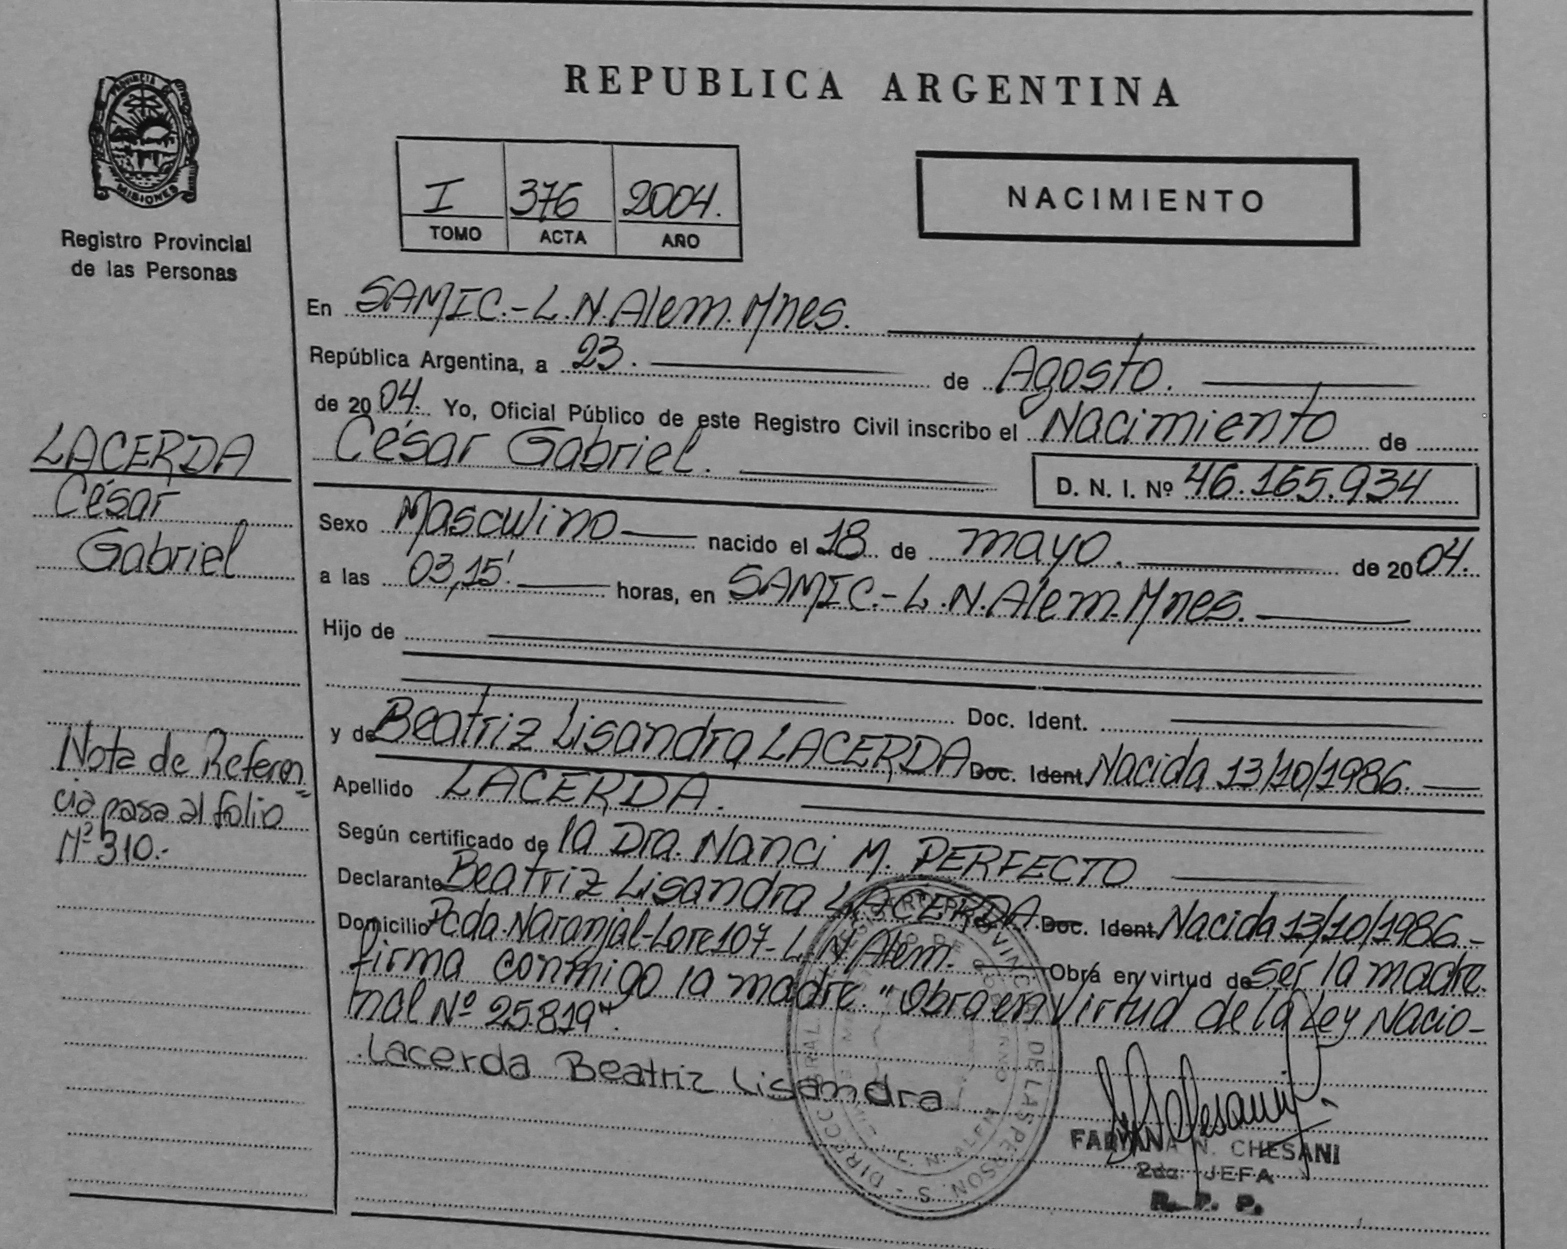 REPUBLICA ARGENTINA
PROVINCIA DE
MISIONES
Registro Provincial
de las Personas
I 376 2004.
TOMO ACTA AÑO
NACIMIENTO
En SAMIC.-L.N.Alem.Mnes.
República Argentina, a 23. de Agosto.
de 2004. Yo, Oficial Público de este Registro Civil inscribo el Nacimiento de
César Gabriel.
D. N. I. Nº 46.165.934
LACERDA
César
Gabriel
Sexo Masculino nacido el 18 de mayo. de 2004.
a las 03,15'. horas, en SAMIC.-L.N.Alem.Mnes.
Hijo de
Doc. Ident.
y de Beatriz Lisandra LACERDA Doc. Ident. Nacida 13/10/1986.
Apellido LACERDA.
Según certificado de la Dra. Nanci M. PERFECTO
Declarante Beatriz Lisandra LACERDA. Doc. Ident. Nacida 13/10/1986-
Domicilio Pcda. Naranjal-Lote 107-L.N Alem. Obra en virtud de ser la madre.
firma conmigo la madre. "Obra en Virtud de la Ley Nacio-
nal Nº 25.819".
Nota de Referen=
cia pasa al folio
Nº 310.-
Lacerda Beatriz Lisandra
FABIANA N. CHESANI
2da. JEFA
R. P. P.